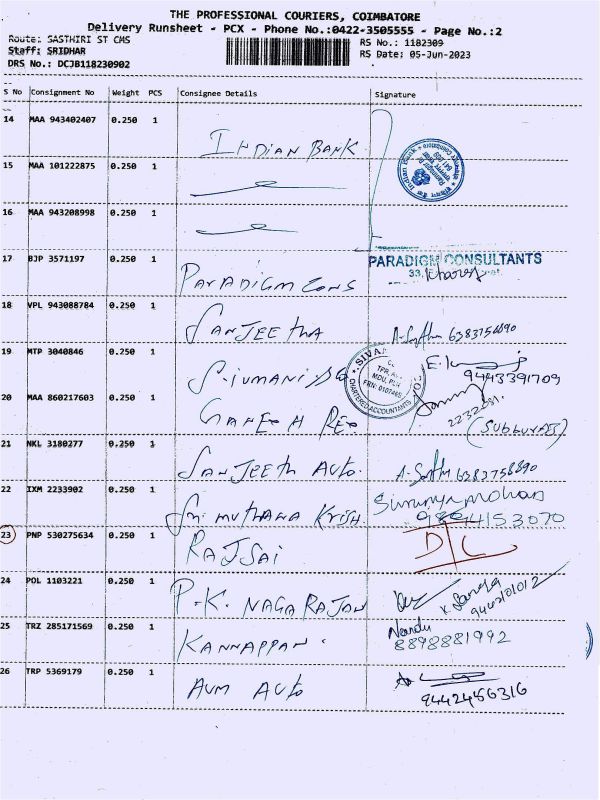 THE PROFESSIONAL COURIERS, COIMBATORE
Delivery Runsheet - PCX - Phone No.:0422-3505555 - Page No.:2
Route: SASTHIRI ST CMS
RS No.: 1182309
Staff: SRIDHAR
RS Date: 05-Jun-2023
DRS No.: DCJB118230902
S No Consignment No Weight PCS Consignee Details Signature
14 MAA 943402407 0.250 1 INDIAN BANK
15 MAA 101222875 0.250 1
16 MAA 943208998 0.250 1
17 BJP 3571197 0.250 1 PARADIGM CONS PARADIGM CONSULTANTS
18 VPL 943088784 0.250 1 SANJEETHA
19 MTP 3040846 0.250 1 9443391709
20 MAA 860217603 0.250 1 GANESH
21 NKL 3180277 0.250 1 SANJEETH AUTO.
22 IXM 2233902 0.250 1 Sri MUTHANA KRISH. 9894153070
23 PNP 530275634 0.250 1 RAJSAI D/L
24 POL 1103221 0.250 1 P.K. NAGARAJAN
25 TRZ 285171569 0.250 1 KANNAPPAN. Nandu 8898881992
26 TRP 5369179 0.250 1 AVM AUTO 9442456316